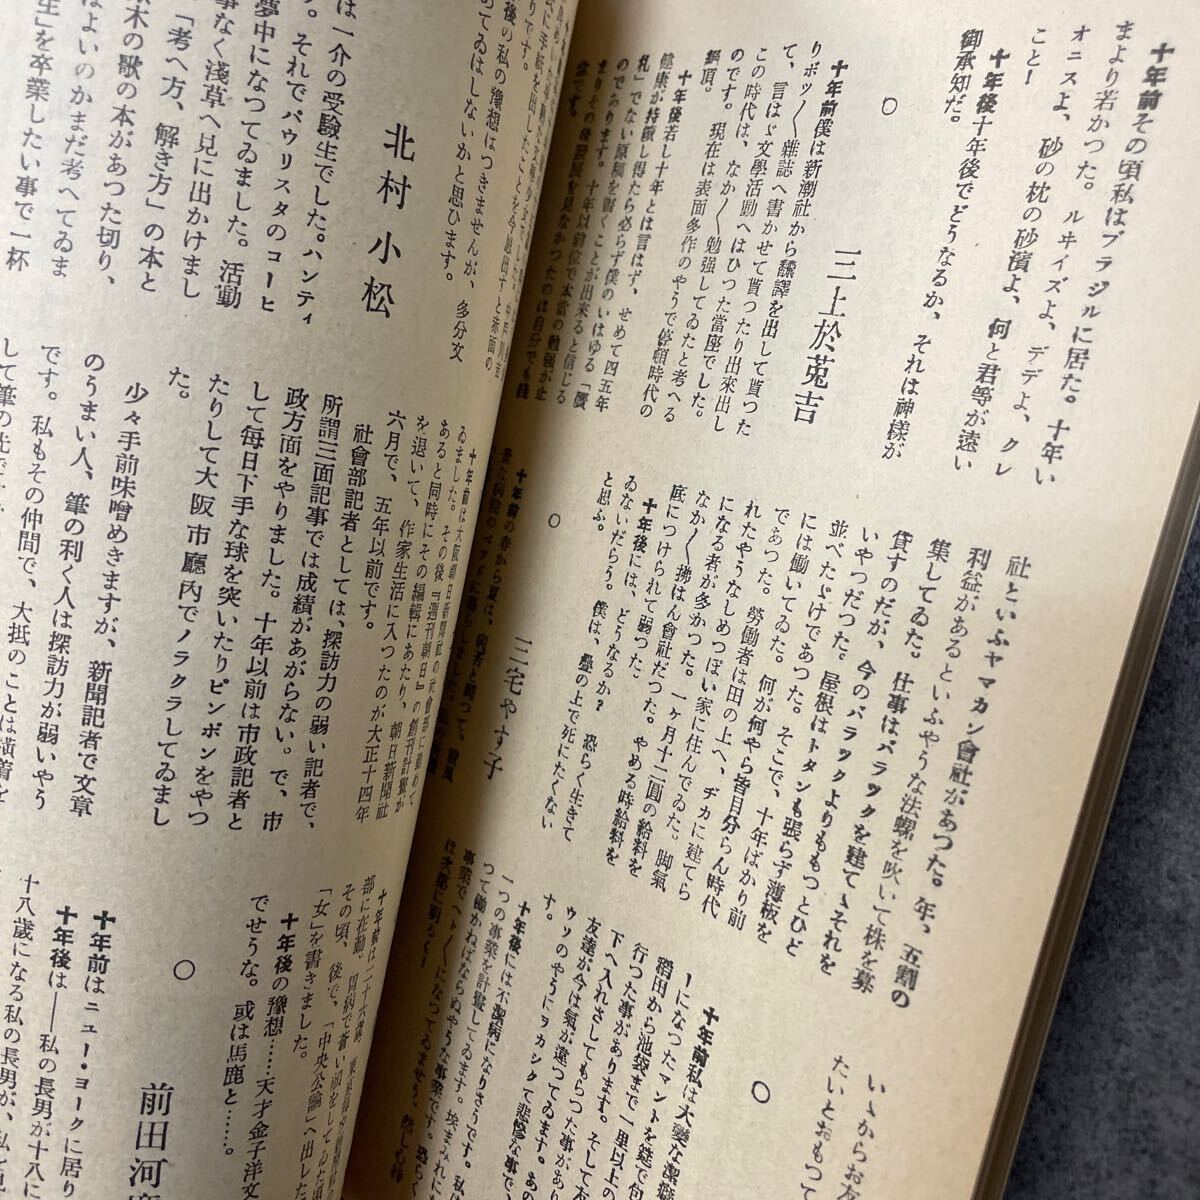 十年前その頃私はブラジルに居た。十年い
まより若かつた。ルヰイズよ、デデよ、クレ
オニスよ、砂の枕の砂濱よ、何と君等が遠い
こと！
十年後十年後でどうなるか、それは神様が
御承知だ。
○
三上於菟吉
十年前僕は新潮社から飜譯を出して貰つた
りポツ〳〵雜誌へ書かせて貰つたり出來出し
て、言はゞ文學活動へはひつた當座でした。
この時代は、なか〳〵勉强してゐたと考へる
のです。現在は表面多作のやうで停頓時代の
絕頂。
十年後若し十年とは言はず、せめて四五年
健康が持續し得たら必らず僕のいはゆる「贋
札」でない原稿を書くことが出來ると信じる
のであります。十年以前位で本當の勉强が止
まりその後發展を見なかつたのは自分でも殘
念です。
社といふヤマカン會社があつた。年、五割の
利益があるといふやうな法螺を吹いて株を募
集してゐた。仕事はバラックを建てゝそれを
貸すのだが、今のバラックよりももつとひど
いやつだつた。屋根はトタンも張らず薄板を
並べたゞけであつた。そこで、十年ばかり前
には働いてゐた。何が何やら皆目分らん時代
であつた。勞働者は田の上へ、ヂカに建てら
れたやうなしめつぽい家に住んでゐた。脚氣
になる者が多かつた。一ヶ月十二圓の給料を
なか〳〵拂はん會社だつた。やめる時給料を
底につけられて弱つた。
十年後には、どうなるか？　恐らく生きて
ゐないだらう。僕は、疊の上で死にたくない
と思ふ。
○
三宅やす子
十年前の春から夏は、病苦と鬪つて、殺風
景な病院のベッドに暮らしました。
いゝからお友
たいとおもつて
○
十年前私は大變な潔癖
ーになつたマントを筵で包
稻田から池袋まで一里以上の
行つた事があります。そして友
下へ入れさしてもらつた事があり
友達が今は氣が違つてゐます。あの
ウソのやうにヲカシクて悲慘な事で、
す。
十年後には不潔病になりさうです。私は
一つの事業を計畫してゐます。埃まみれに
つて働かねばならぬやうな事業です。恐らく
事業でヘト〳〵になつてゐませう、然し心持
は次第に明るく！
てゐはしないかと思ひます。
年後の私の豫想はつきませんが、多分文
北村小松
は一介の受驗生でした。ハンティ
す。それでパウリスタのコーヒ
夢中になつてゐました。活動
事なく淺草へ見に出かけまし
「考へ方、解き方」の本と
木の歌の本があつた切り、
はよいのかまだ考へてゐま
生」を卒業したい事で一杯
十年前は大阪朝日新聞社の社會部に勤めて
ゐました。その後『週刊朝日』の創刊計畫が
あると同時にその編輯にあたり、朝日新聞社
を退いて、作家生活に入つたのが大正十四年
六月で、五年以前です。
社會部記者としては、探訪力の弱い記者で、
所謂三面記事では成績があがらない。で、市
政方面をやりました。十年以前は市政記者と
して每日下手な球を突いたりピンポンをやつ
たりして大阪市廳內でノラクラしてゐまし
た。
少々手前味噌めきますが、新聞記者で文章
のうまい人、筆の利く人は探訪力が弱いやう
です。私もその仲間で、大抵のことは橫着を
して筆の先で
十年前は二十六歲、
その頃、後で、「中央公論」へ出した
「女」を書きました。
十年後の豫想……天才金子洋文
でせうな。或は馬鹿と……。
○
前田河
十年前はニュー・ヨークに居り
十年後は――私の長男が十八に
十八歲になる私の長男が、私